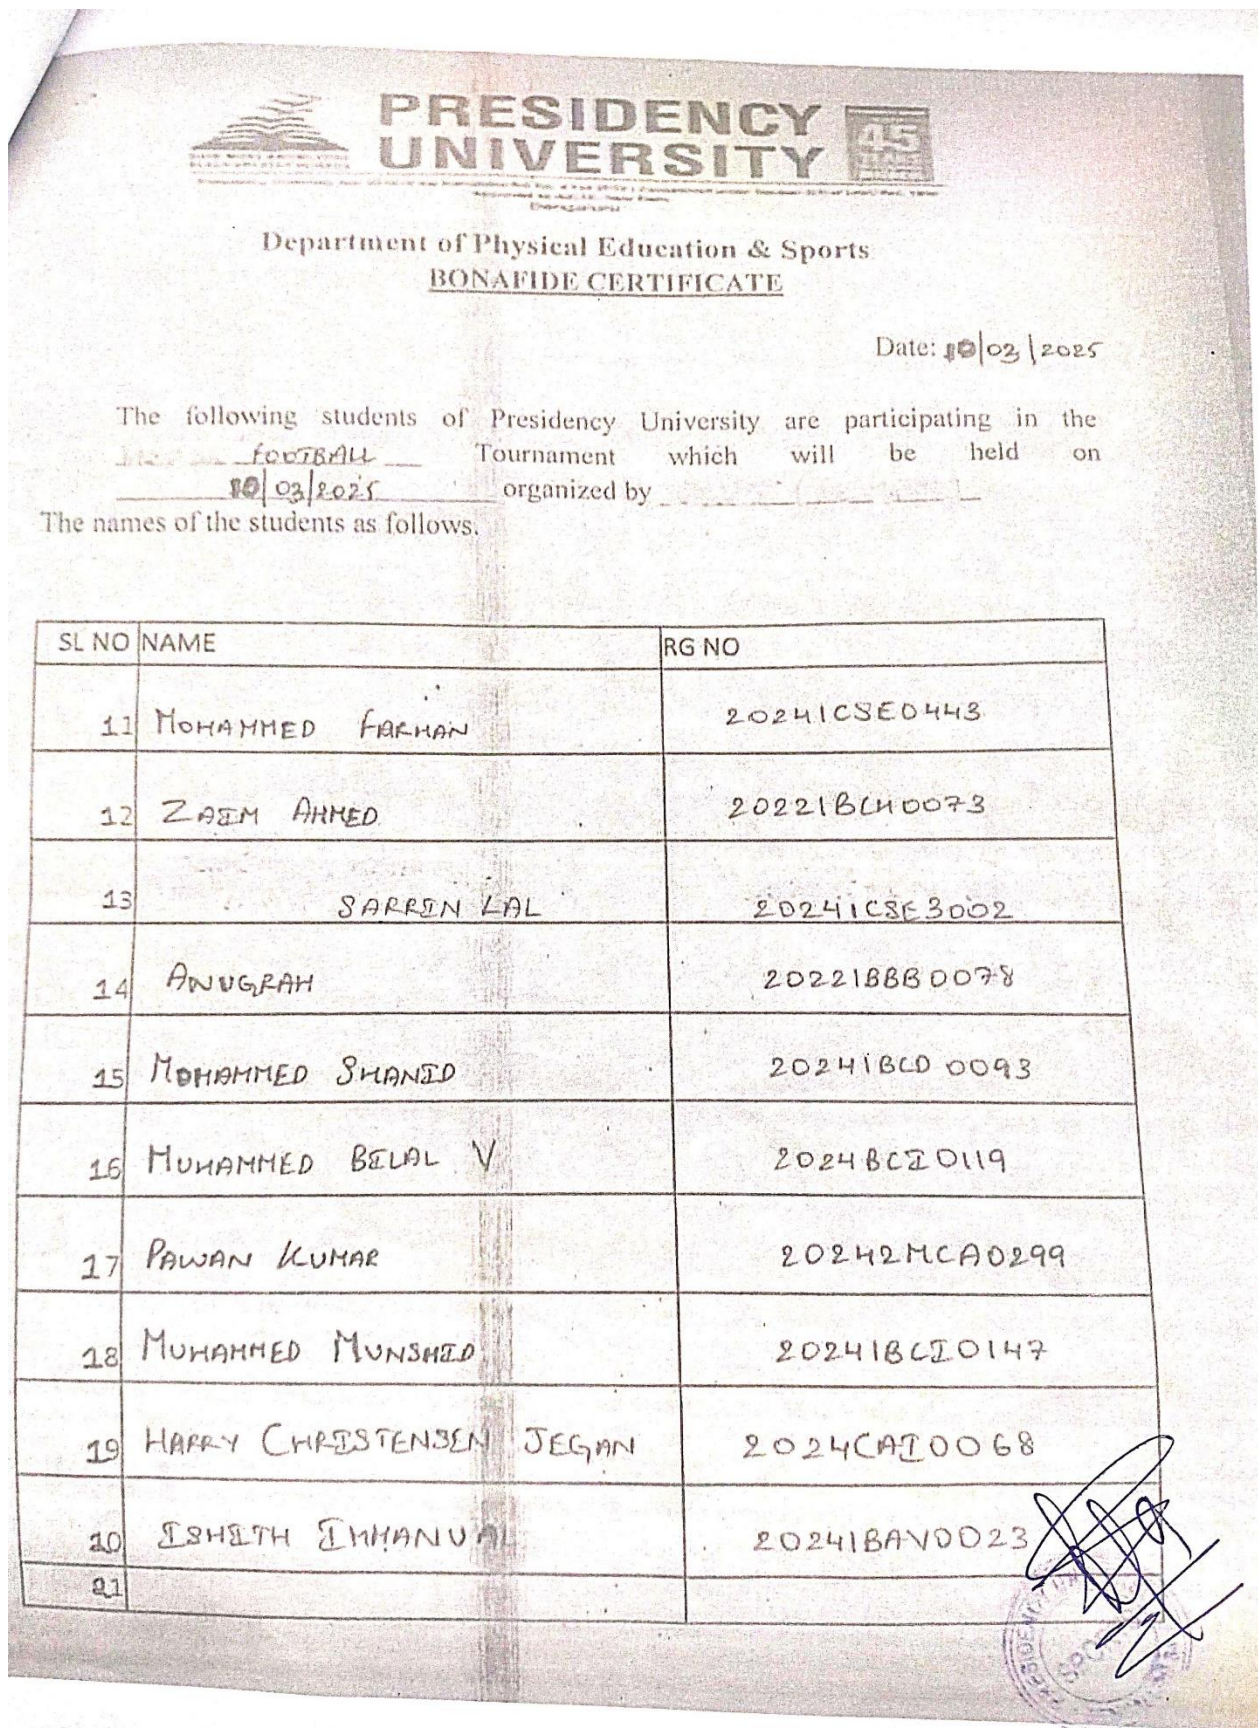 PRESIDENCY
UNIVERSITY
45
Department of Physical Education & Sports
BONAFIDE CERTIFICATE
Date: 10/03/2025
The following students of Presidency University are participating in the
FOOTBALL Tournament which will be held on
10/03/2025 organized by
The names of the students as follows.
SL NO NAME RG NO
11 MOHAMMED FARHAN 20241CSE0443
12 ZAIM AHMED 20221BCH0073
13 SARRIN LAL 20241CSE3002
14 ANUGRAH 20221BBB0078
15 MOHAMMED SHANID 20241BCD0093
16 MUHAMMED BILAL V 2024BCI0119
17 PAWAN KUMAR 20242MCA0299
18 MUHAMMED MUNSHID 20241BCI0147
19 HARRY CHRISTENSEN JEGAN 2024CAI0068
20 ISHITH IMMANUAL 20241BAV0023
21